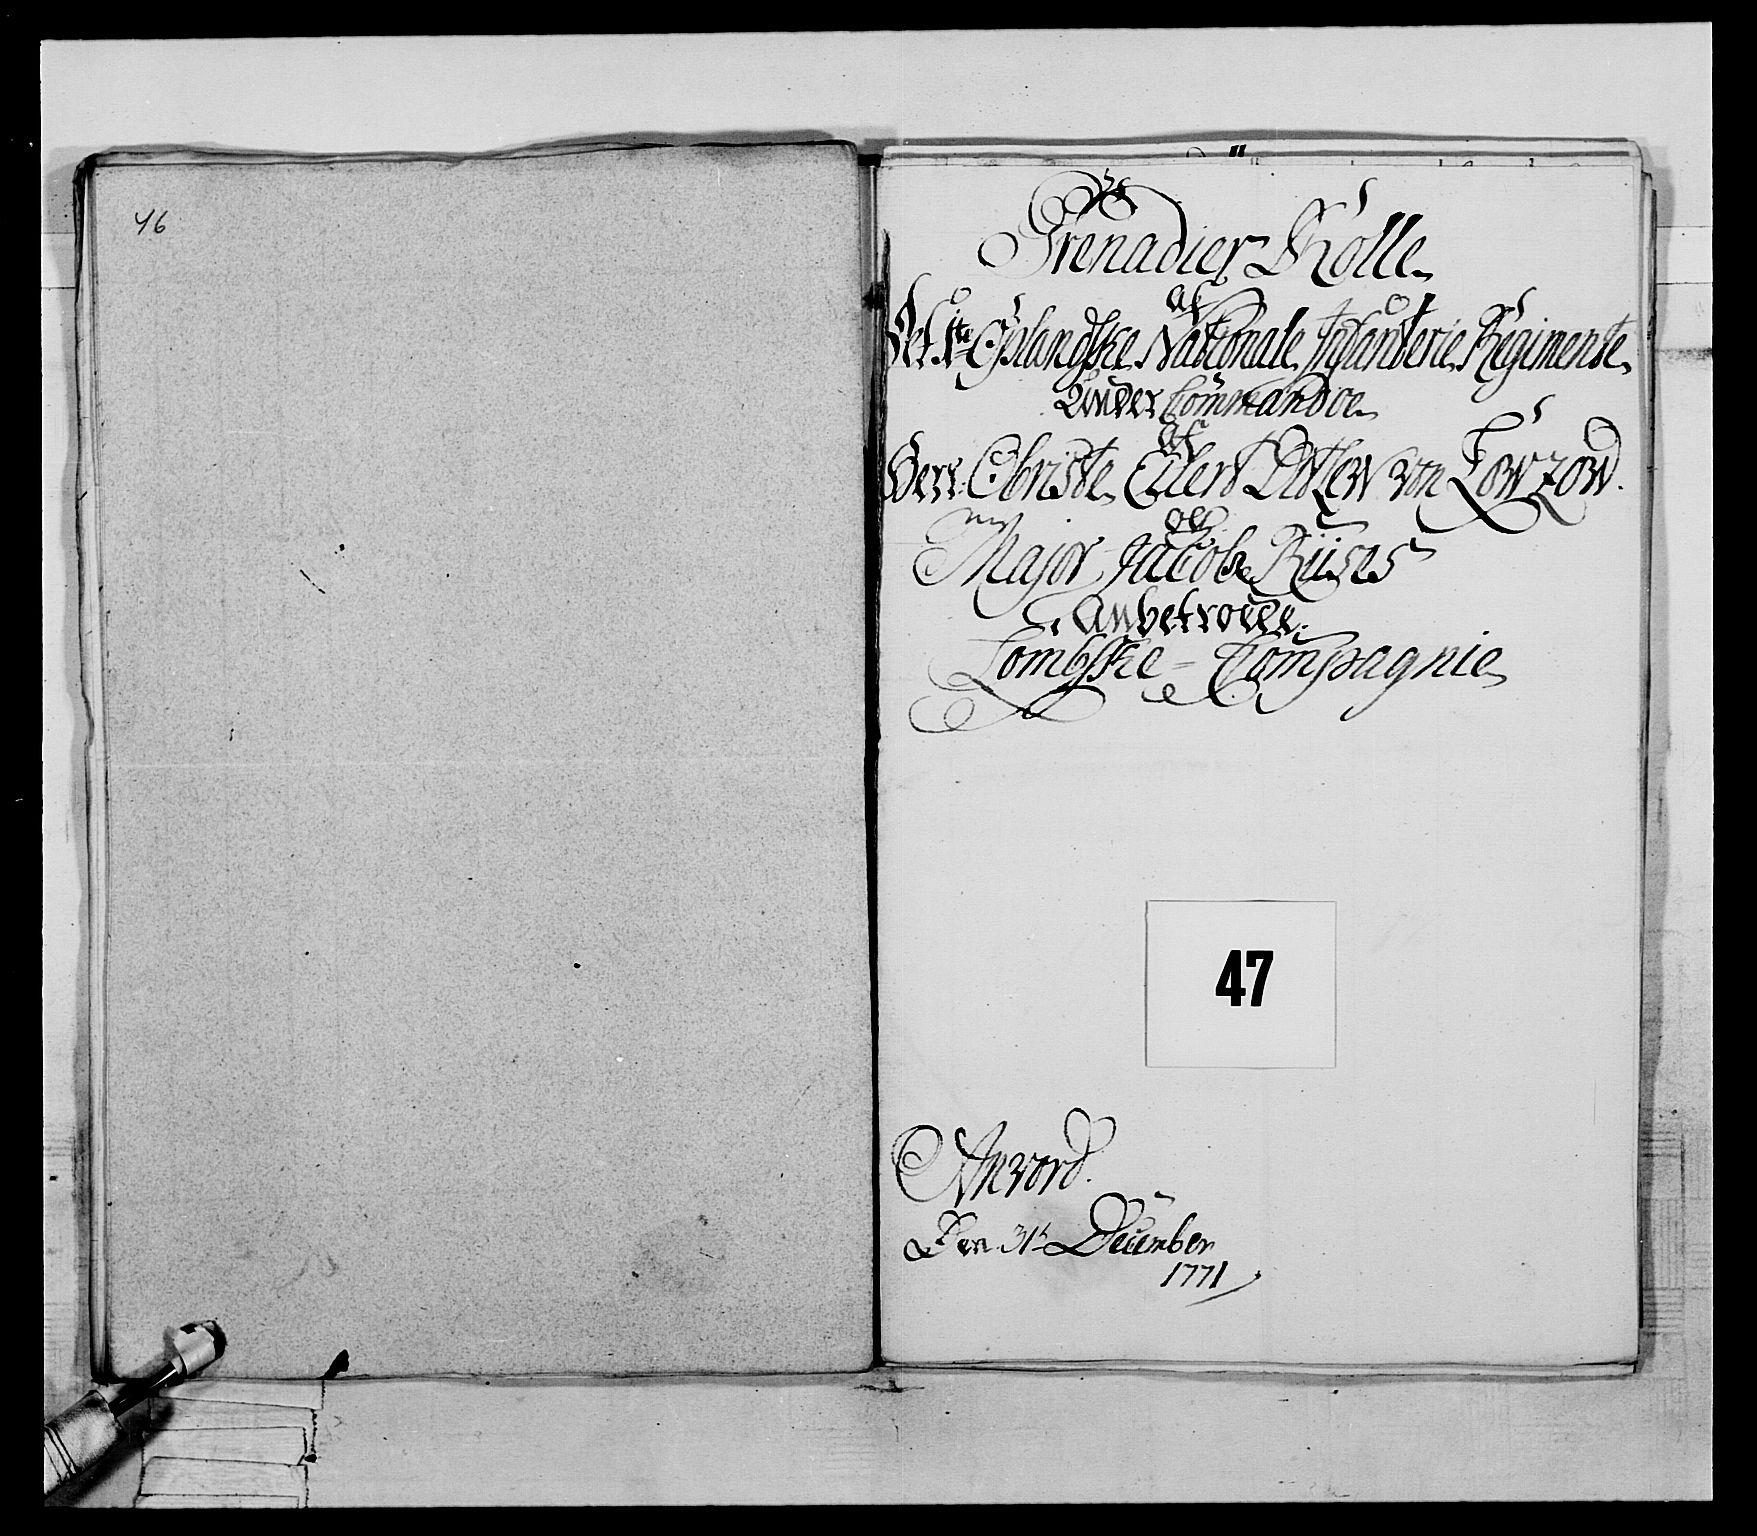 46
Grenadier Rolle
af
Det 1te Oplandske Nationale Infanterie Regimente
Under Commandoe
af
Herr Obriste Eilert Ditlew von Lowzow.
og
Major Jacob Riises
Anbetroede
Tombske - Compagnie
47
Anvord.
Den 31te December
1771